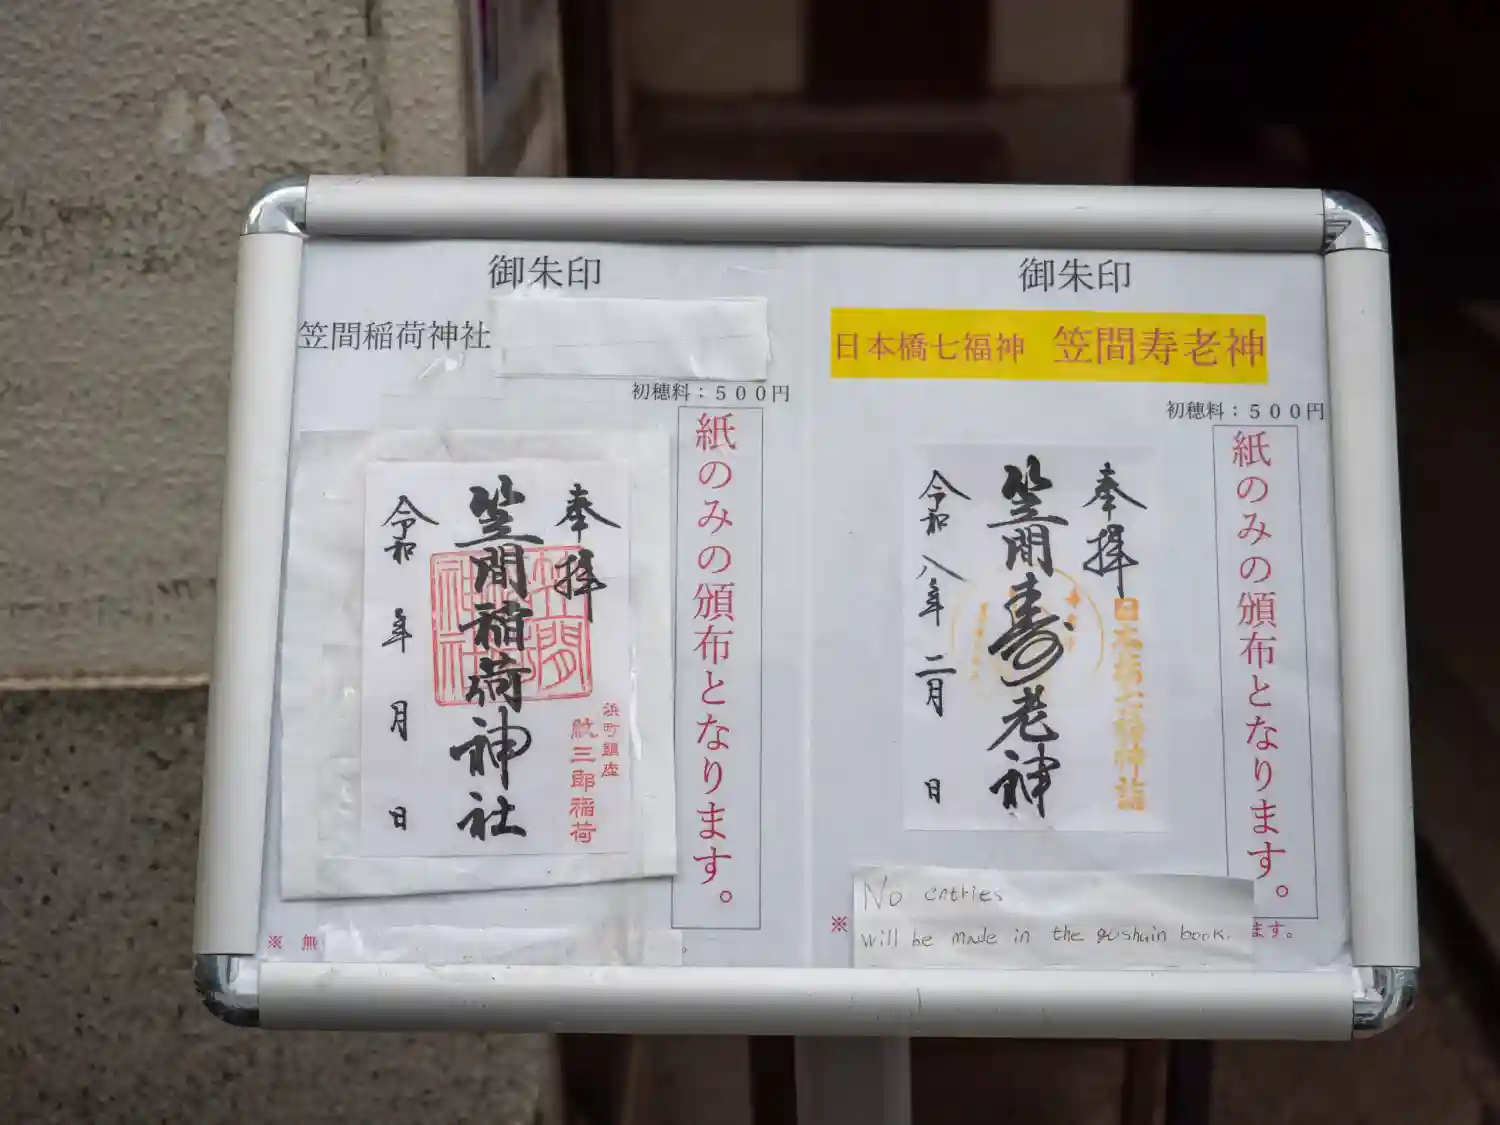 御朱印
笠間稲荷神社
初穂料：５００円
紙のみの頒布となります。
奉拝
笠間稲荷神社
令和 年 月 日
笠間
神社
浜町鎮座
三郎稲荷
※ 無
。
御朱印
日本橋七福神 笠間寿老神
初穂料：５００円
紙のみの頒布となります。
奉拝
日本橋七福神詣
笠間寿老神
令和八年二月 日
No entries
※ will be made in the goshuin book. ます。